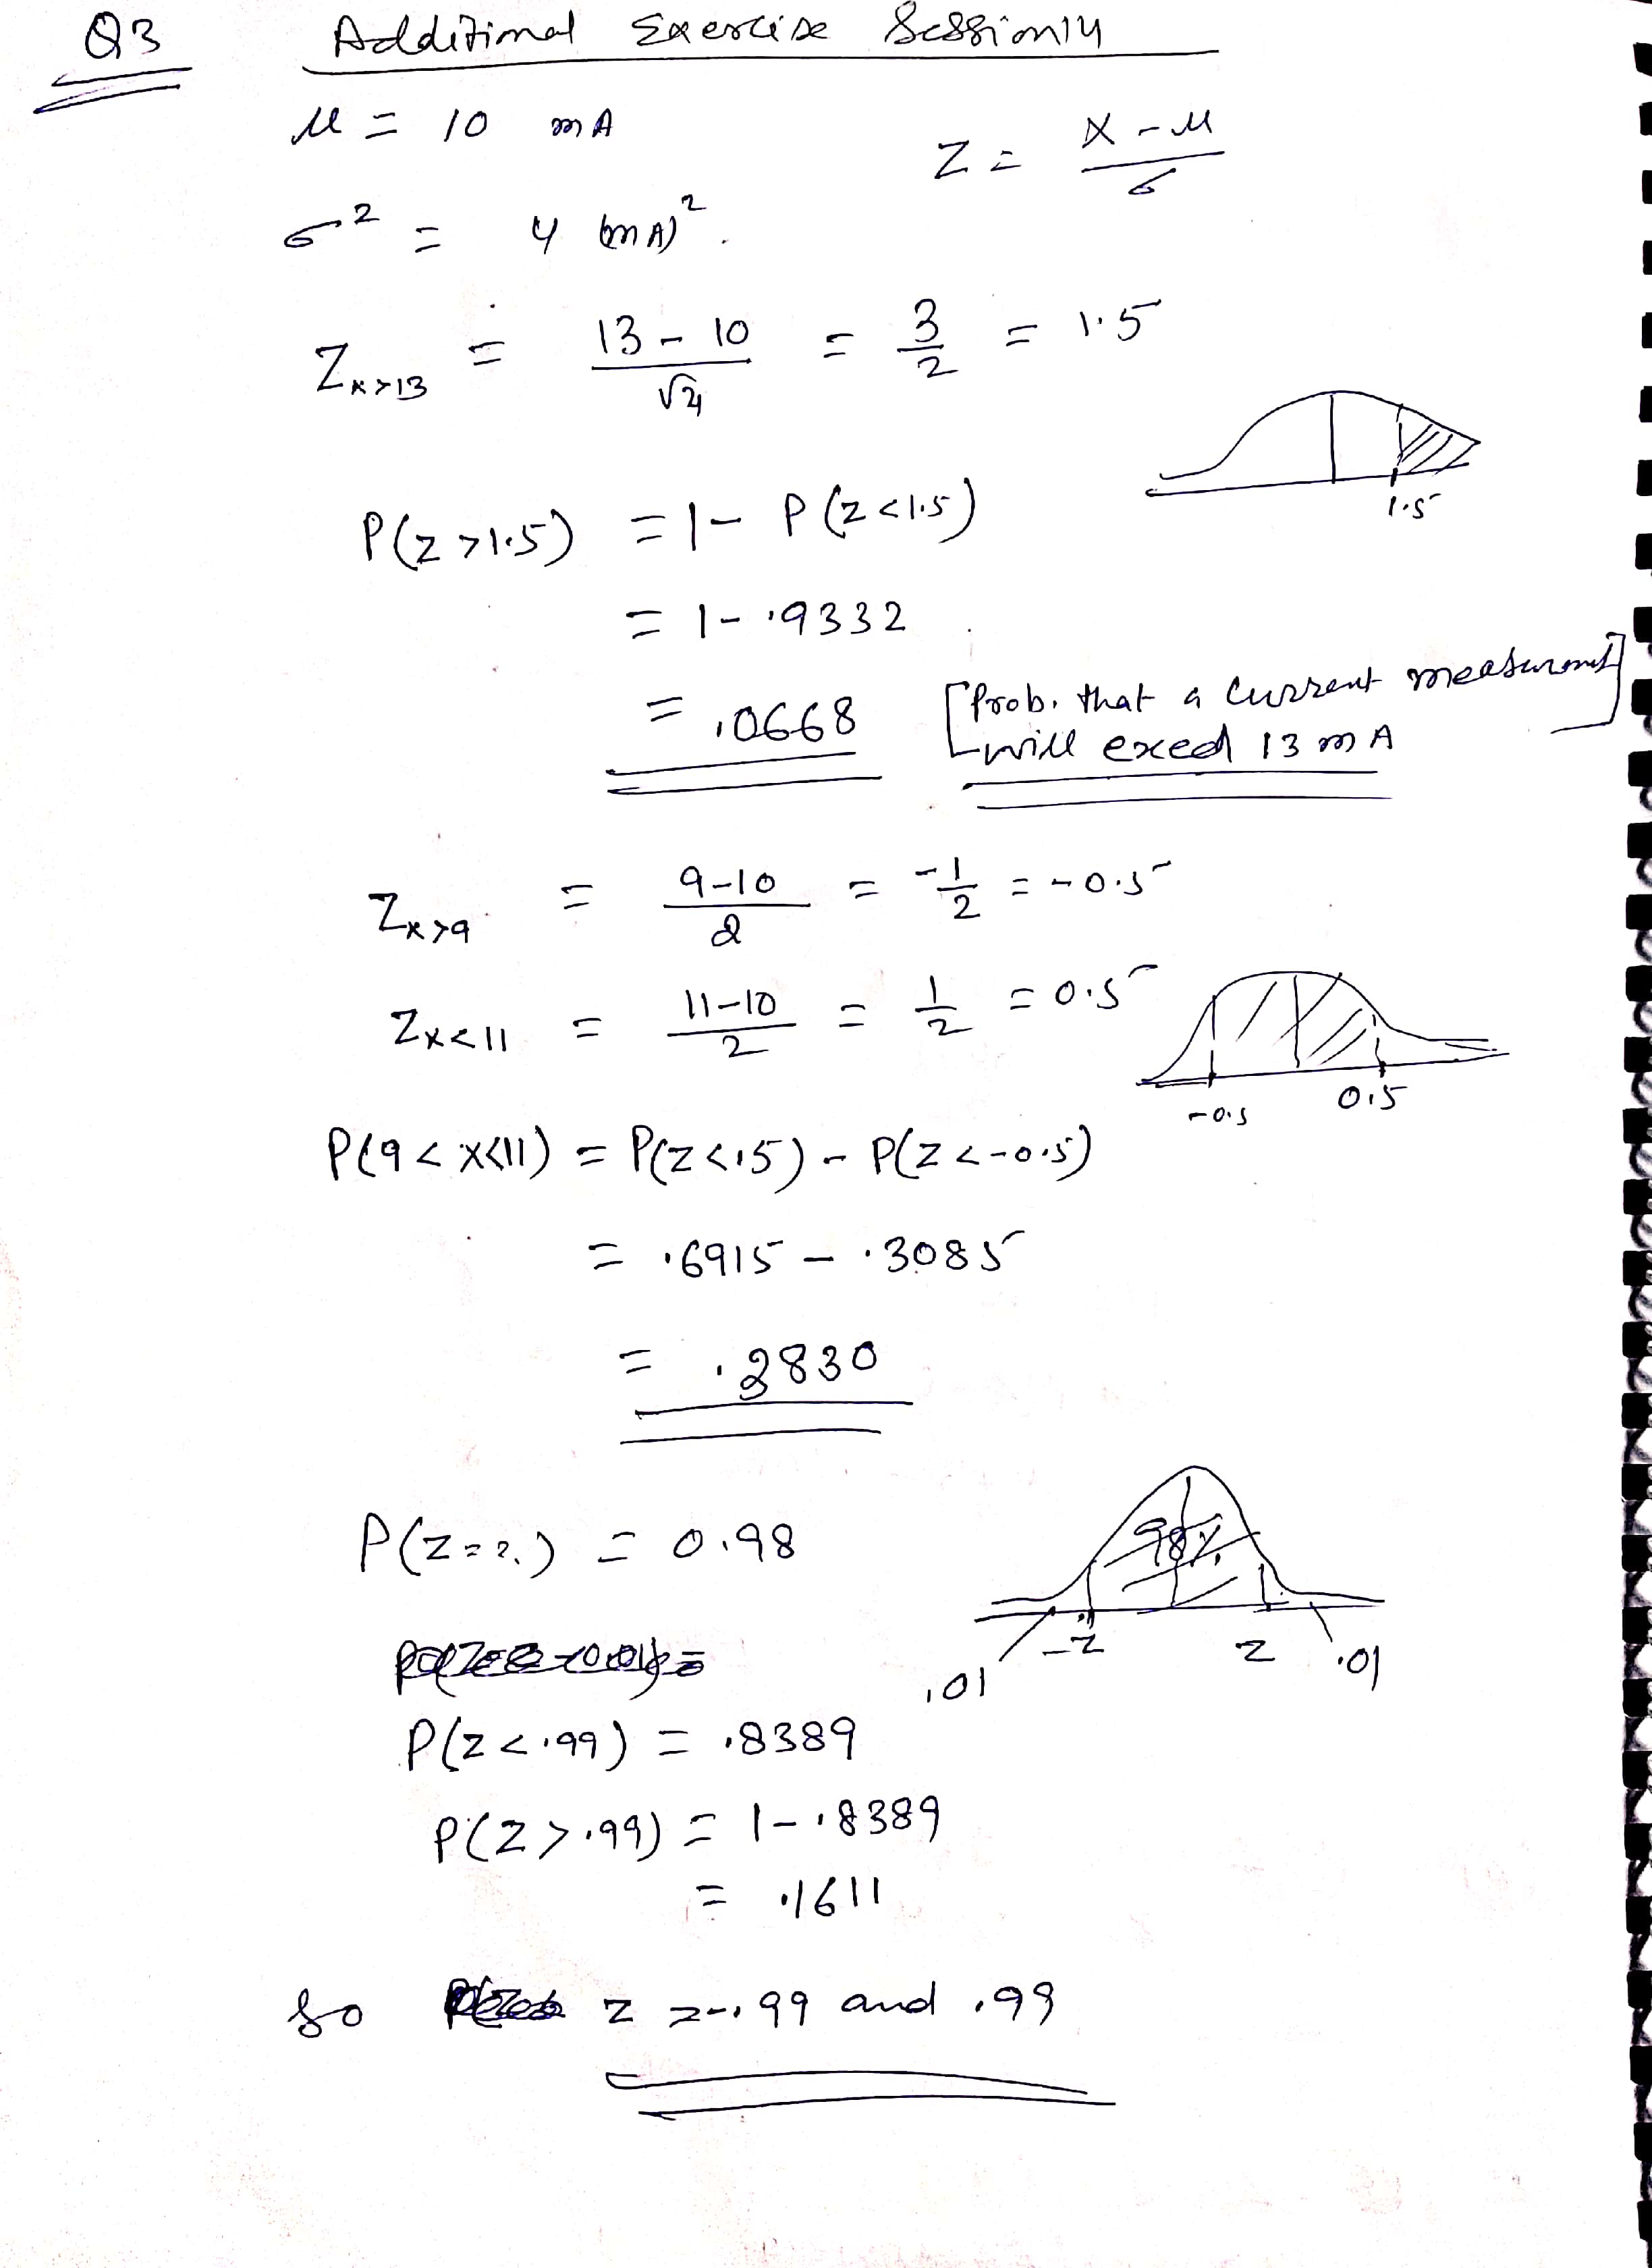 Q3 Additional Exercise Session14
μ = 10 mA
Z = X - μ / σ
σ² = 4 (mA)².
Z x>13 = 13 - 10 / √4 = 3/2 = 1.5
1.5
P(Z >1.5) = 1 - P(Z <1.5)
= 1 - .9332
= .0668 [Prob. that a current measurment]
will exeed 13 mA
Z x>9 = 9-10 / 2 = -1/2 = -0.5
Z x<11 = 11-10 / 2 = 1/2 = 0.5
-0.5 0.5
P(9 < X<11) = P(Z <.5) - P(Z <-0.5)
= .6915 - .3085
= .2830
P(Z = ?) = 0.98
98%
-Z Z
.01 .01
P(Z < .99) = .8389
P(Z > .99) = 1 - .8389
= .1611
So Z = -.99 and .99